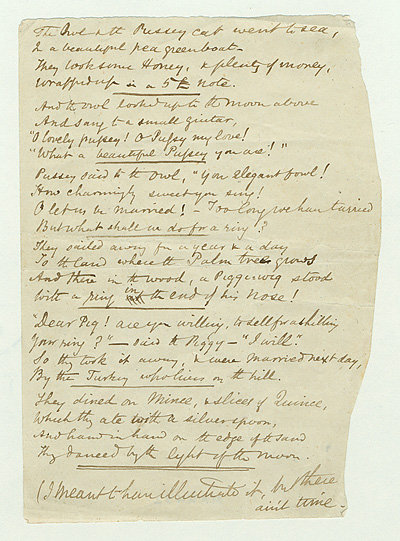 The Owl & the Pussey cat went to sea,
In a beautiful pea green boat.
They took some Honey, & plenty of money,
Wrapped up in a 5£ note.
And the Owl looked up to the moon above
And sang to a small guitar,
"O lovely pussey! O Pussey my love!
"What a beautiful Pussey you are!"
Pussey said to the Owl, "You elegant fowl!
How charmingly sweet you sing!
O let us be married! – Too long we have tarried
But what shall we do for a ring?
They sailed away for a year & a day
To the land where the Palm tree grows
And there in the wood, a Piggywig stood
With a ring in the end of his nose!
"Dear Pig! are you willing, to sell for a shilling
Your ring?" – said the Piggy – "I will"
So they took it away, & were married next day,
By the Turkey who lives on the hill.
They dined on Mince, & slices of Quince,
Which they ate with a silver spoon,
And hand in hand on the edge of the sand
They danced by the light of the moon.
(I meant to have illustrated it, but there
ain't time –